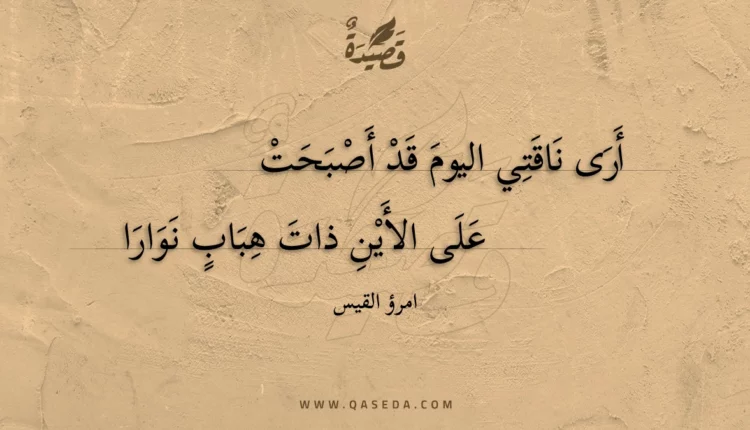 قَصِيدَةٌ
أَرَى نَاقَتِي اليومَ قَدْ أَصْبَحَتْ
عَلَى الأَيْنِ ذاتَ هِبَابٍ نَوَارَا
امرؤ القيس
WWW.QASEDA.COM